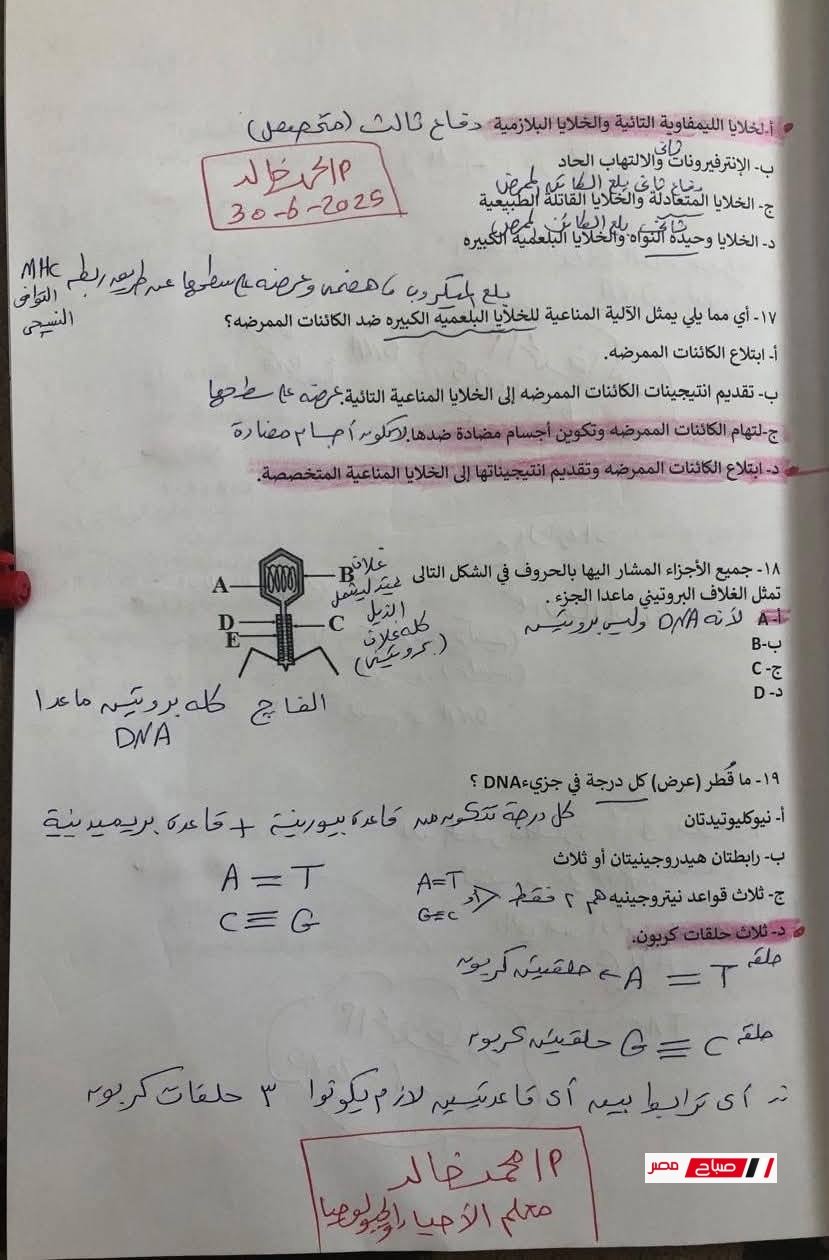 أ-لخلايا الليمفاوية التائية والخلايا البلازمية دفاع ثالث (متخصص)
ثانى
ب- الإنترفيرونات والالتهاب الحاد
P/محمد خالد
30-6-2025
دفاع ثانى بلع الكائن الممرض
ج- الخلايا المتعادلة والخلايا القاتلة الطبيعية
بلع الكائن الممرض
د- الخلايا وحيدة النواه والخلايا البلعمية الكبيره
بلع الميكروب ما هضمه وعرضه على سطحها عن طريق ربطه MHC
التوافق
النسيجى
١٧- أي مما يلي يمثل الآلية المناعية للخلايا البلعميه الكبيره ضد الكائنات الممرضه؟
أ- ابتلاع الكائنات الممرضه.
ب- تقديم انتيجينات الكائنات الممرضه إلى الخلايا المناعية التائية. عرضه على سطحها
ج-لتهام الكائنات الممرضه وتكوين أجسام مضادة ضدها. لا تكون أجسام مضادة
د- ابتلاع الكائنات الممرضه وتقديم انتيجيناتها إلى الخلايا المناعية المتخصصة.
١٨- جميع الأجزاء المشار اليها بالحروف في الشكل التالى
تمثل الغلاف البروتيني ماعدا الجزء .
A
B
C
D
E
غلاف
يمتد ليشمل
الذيل
كله غلاف
(بروتينى)
أ- A لأنه DNA وليس بروتين
ب-B
ج- C
د- D
الفاج كله بروتين ماعدا
DNA
١٩- ما قُطر (عرض) كل درجة في جزيءDNA ؟
أ- نيوكليوتيدتان كل درجة تتكون من قاعدة بيورينية + قاعدة بريميدينية
ب- رابطتان هيدروجينيتان أو ثلاث
A = T
C ≡ G
ج- ثلاث قواعد نيتروجينيه هم ٢ فقط أو
A=T
G≡C
د- ثلاث حلقات كربون.
حلقه T = A حلقتين كربون
حلقه C ≡ G حلقتين كربون
∴ أى ترابط بين أى قاعدتين لازم يكونوا ٣ حلقات كربون
P/محمد خالد
معلم الأحياء والجيولوجيا
صباح مصر